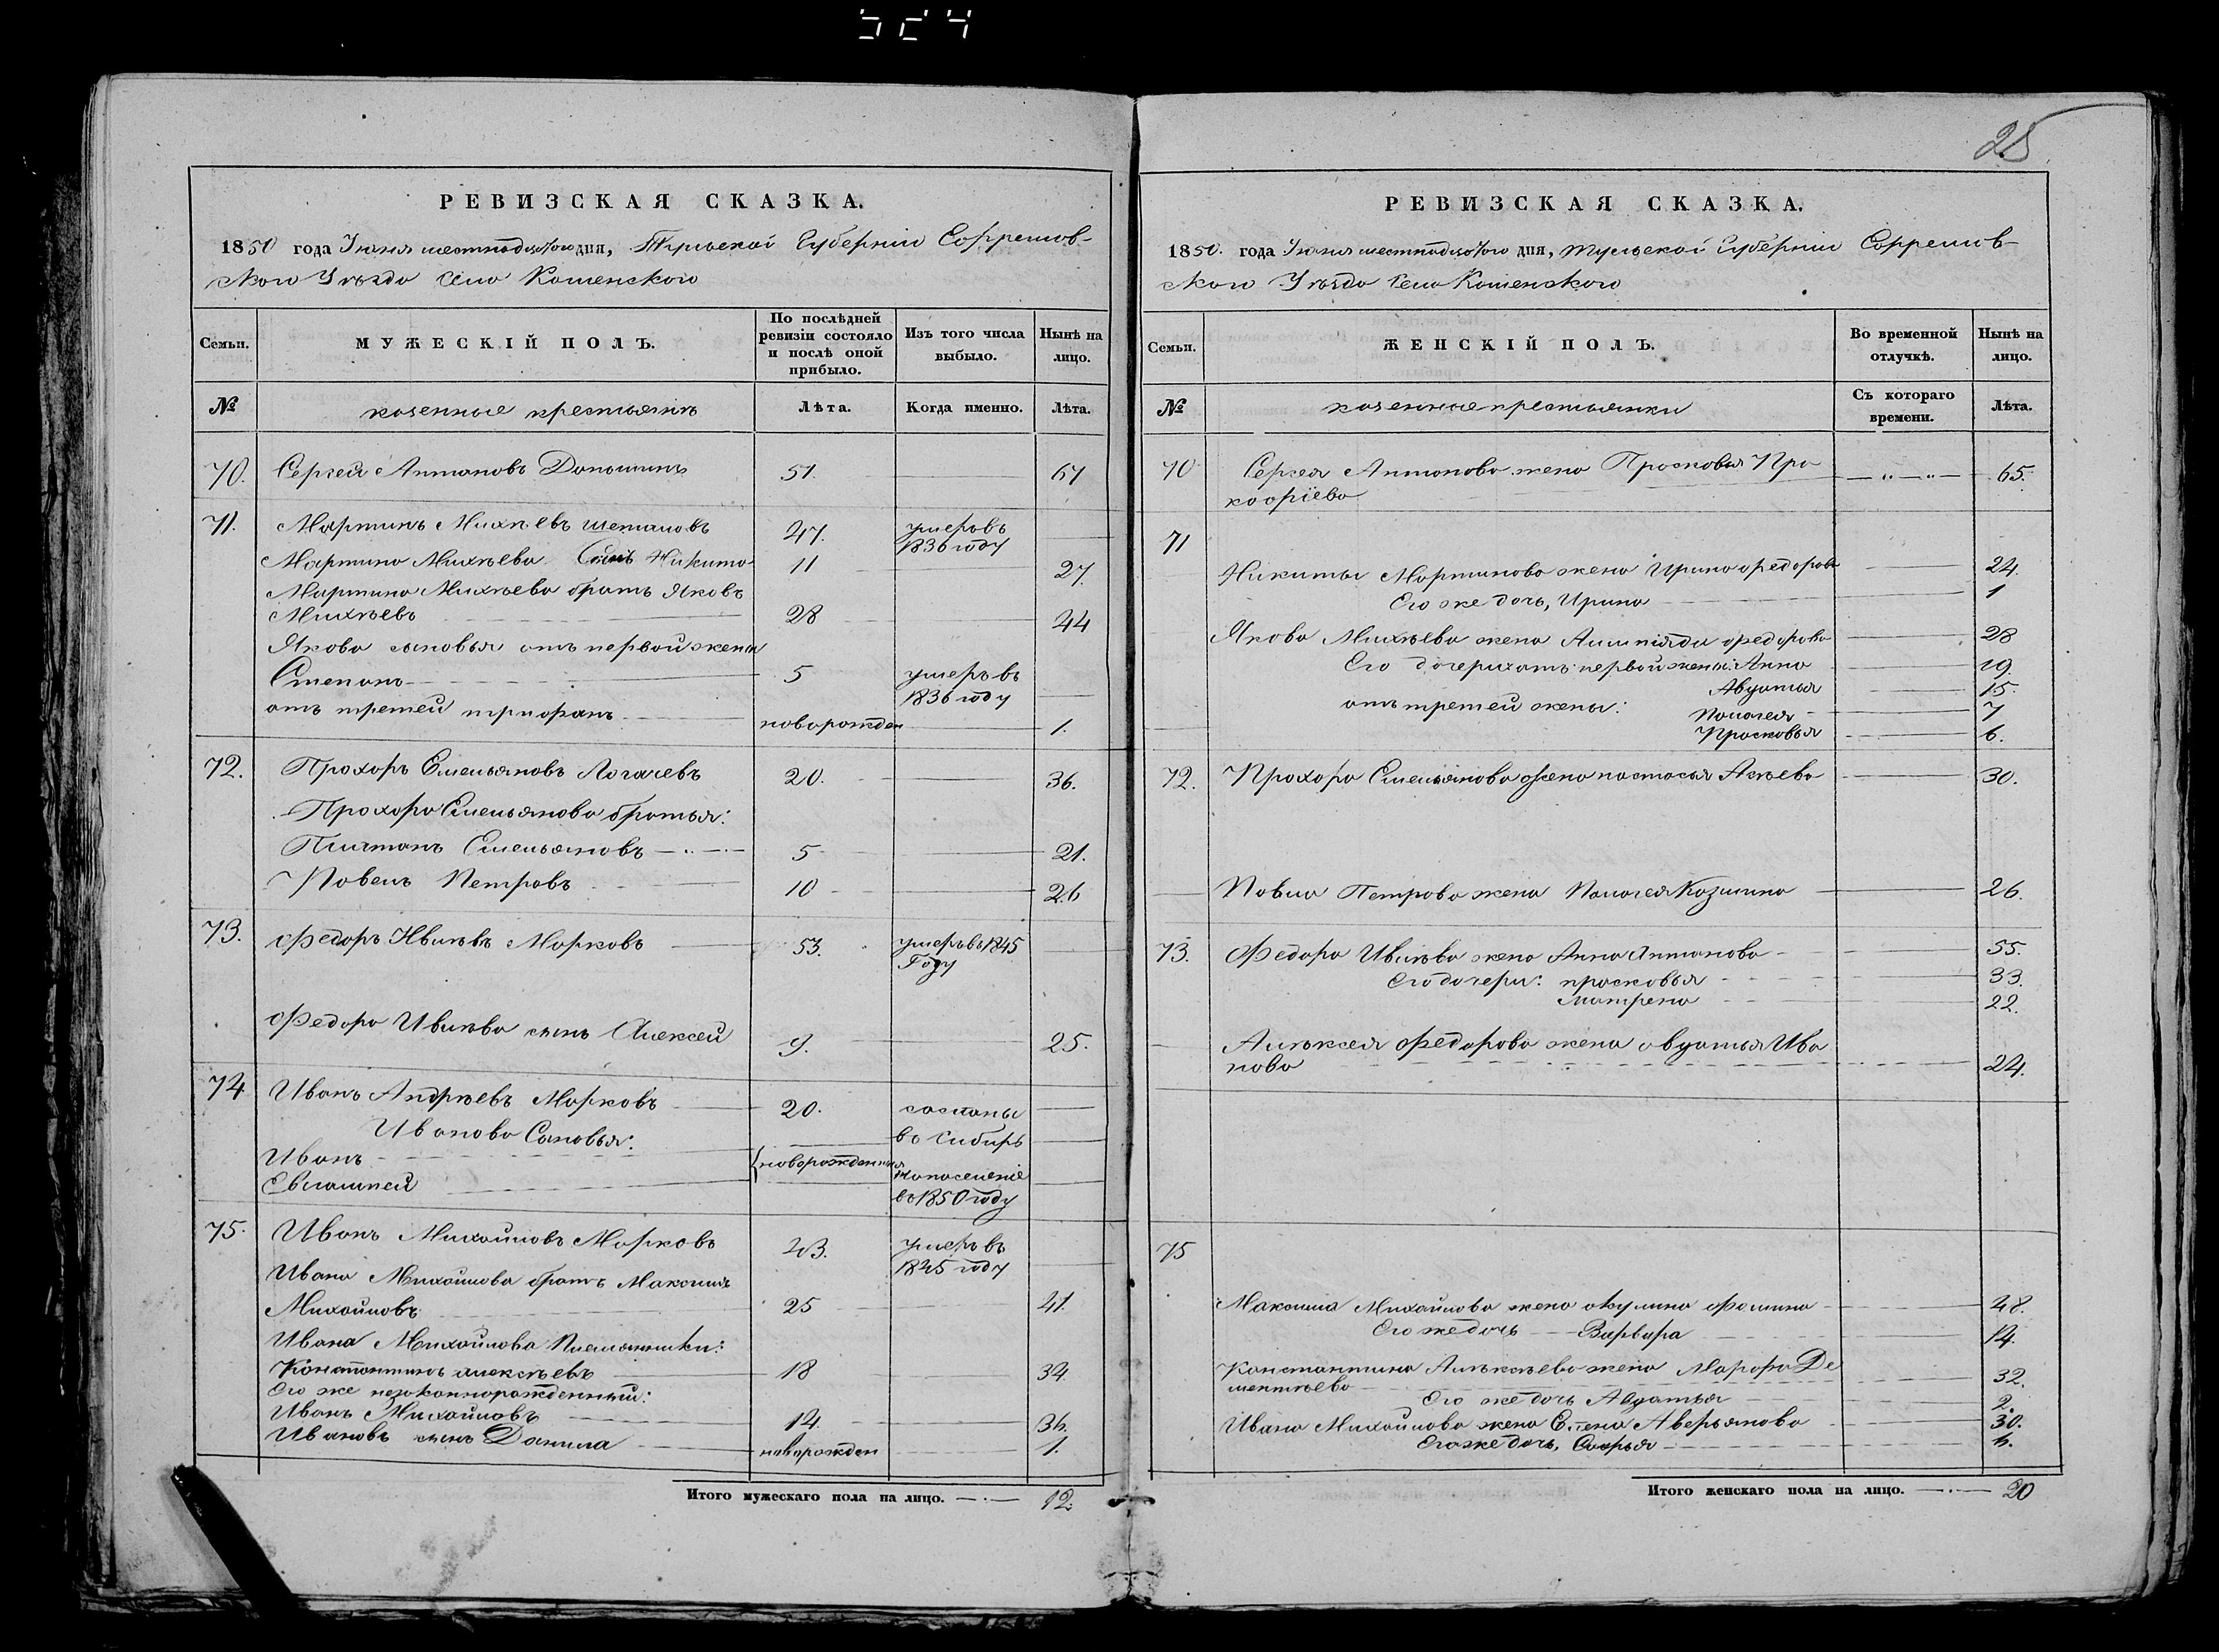 25
РЕВИЗСКАЯ СКАЗКА.
1850 года Іюня шестнадцатого дня, Тульской Губерніи Ефремов-
скаго Уѣзда села Каменского
Семьи.
МУЖЕСКІЙ ПОЛЪ.
По послѣдней ревизіи состояло и послѣ оной прибыло.
Изъ того числа выбыло.
Нынѣ на лицо.
№
казенные крестьянѣ
Лѣта.
Когда именно.
Лѣта.
70. Сергей Антоновъ 51. 67
71. Мартинъ Михѣевъ 47. умеръ въ 1836 году
Мартина Михѣева Сынъ Никита 11 27.
Мартина Михѣева братъ Яковъ
Михѣевъ 28 44
Якова сыновья отъ первой жены
Степанъ 5 умеръ въ 1836 году
отъ третей трифанъ новорожден 1.
72. Прохоръ Емельяновъ Логачевъ 20. 36.
Прохора Емельянова братья:
Платонъ Емельяновъ 5 21.
Павелъ Петровъ 10 26
73. Федоръ Ивлѣвъ Марковъ 53. умеръ въ 1845 Году
Федора Ивлѣва сынъ Алексей 9. 25.
74 Иванъ Андрѣевъ Марковъ 20. сосланы
Иванова Сыновья: въ Сибирь
Иванъ новорожденныя на поселеніе
Евлампей въ 1850 году
75. Иванъ Михайловъ Марковъ 43. умеръ въ 1845 году
Ивана Михайлова братъ Максимъ
Михайловъ 25 41.
Ивана Михайлова Племянники:
Константинъ алексѣевъ 18 34.
Его же незаконнорожденный:
Иванъ Михайловъ 14.
Ивановъ сынъ Данила новорожден 1.
Итого мужескаго пола на лицо. 12.
РЕВИЗСКАЯ СКАЗКА.
1850. года Іюня шестнадцатого дня, Тульской Губерніи Ефремов-
скаго Уѣзда села Каменского
Семьи.
ЖЕНСКІЙ ПОЛЪ.
Во временной отлучкѣ.
Нынѣ на лицо.
№
казенные крестьянки
Съ котораго времени.
Лѣта.
70 Сергея Антонова жена Прасковья Про
кофіева 65.
71
Никиты Мартинова жена Ирина федорова 24.
Его же дочь, Ирина 1
Якова Михѣева жена федорова 28
Его дочери отъ первой жены: Анна 19.
Авдотья 15.
отъ третей жены: Палагея 7
Прасковья 6.
72. Прохора Емельянова жена настасья 30.
Павла Петрова жена Палагея Козмина 26.
73. Федора Ивлѣва жена Анна Антонова 55.
Его дочери: прасковья 33.
Матрена 22.
Алѣксея федорова жена авдотья Ива
нова 24.
75
Максима Михайлова жена акулина фомина 48.
Его же дочь Варвара 14.
Константина Алѣксѣева жена Марфа Де
ментѣева 32.
Его же дочь Авдотья 2.
Ивана Михайлова жена Елена Аверьянова 30.
Его же дочь,
Итого женскаго пола на лицо. 20